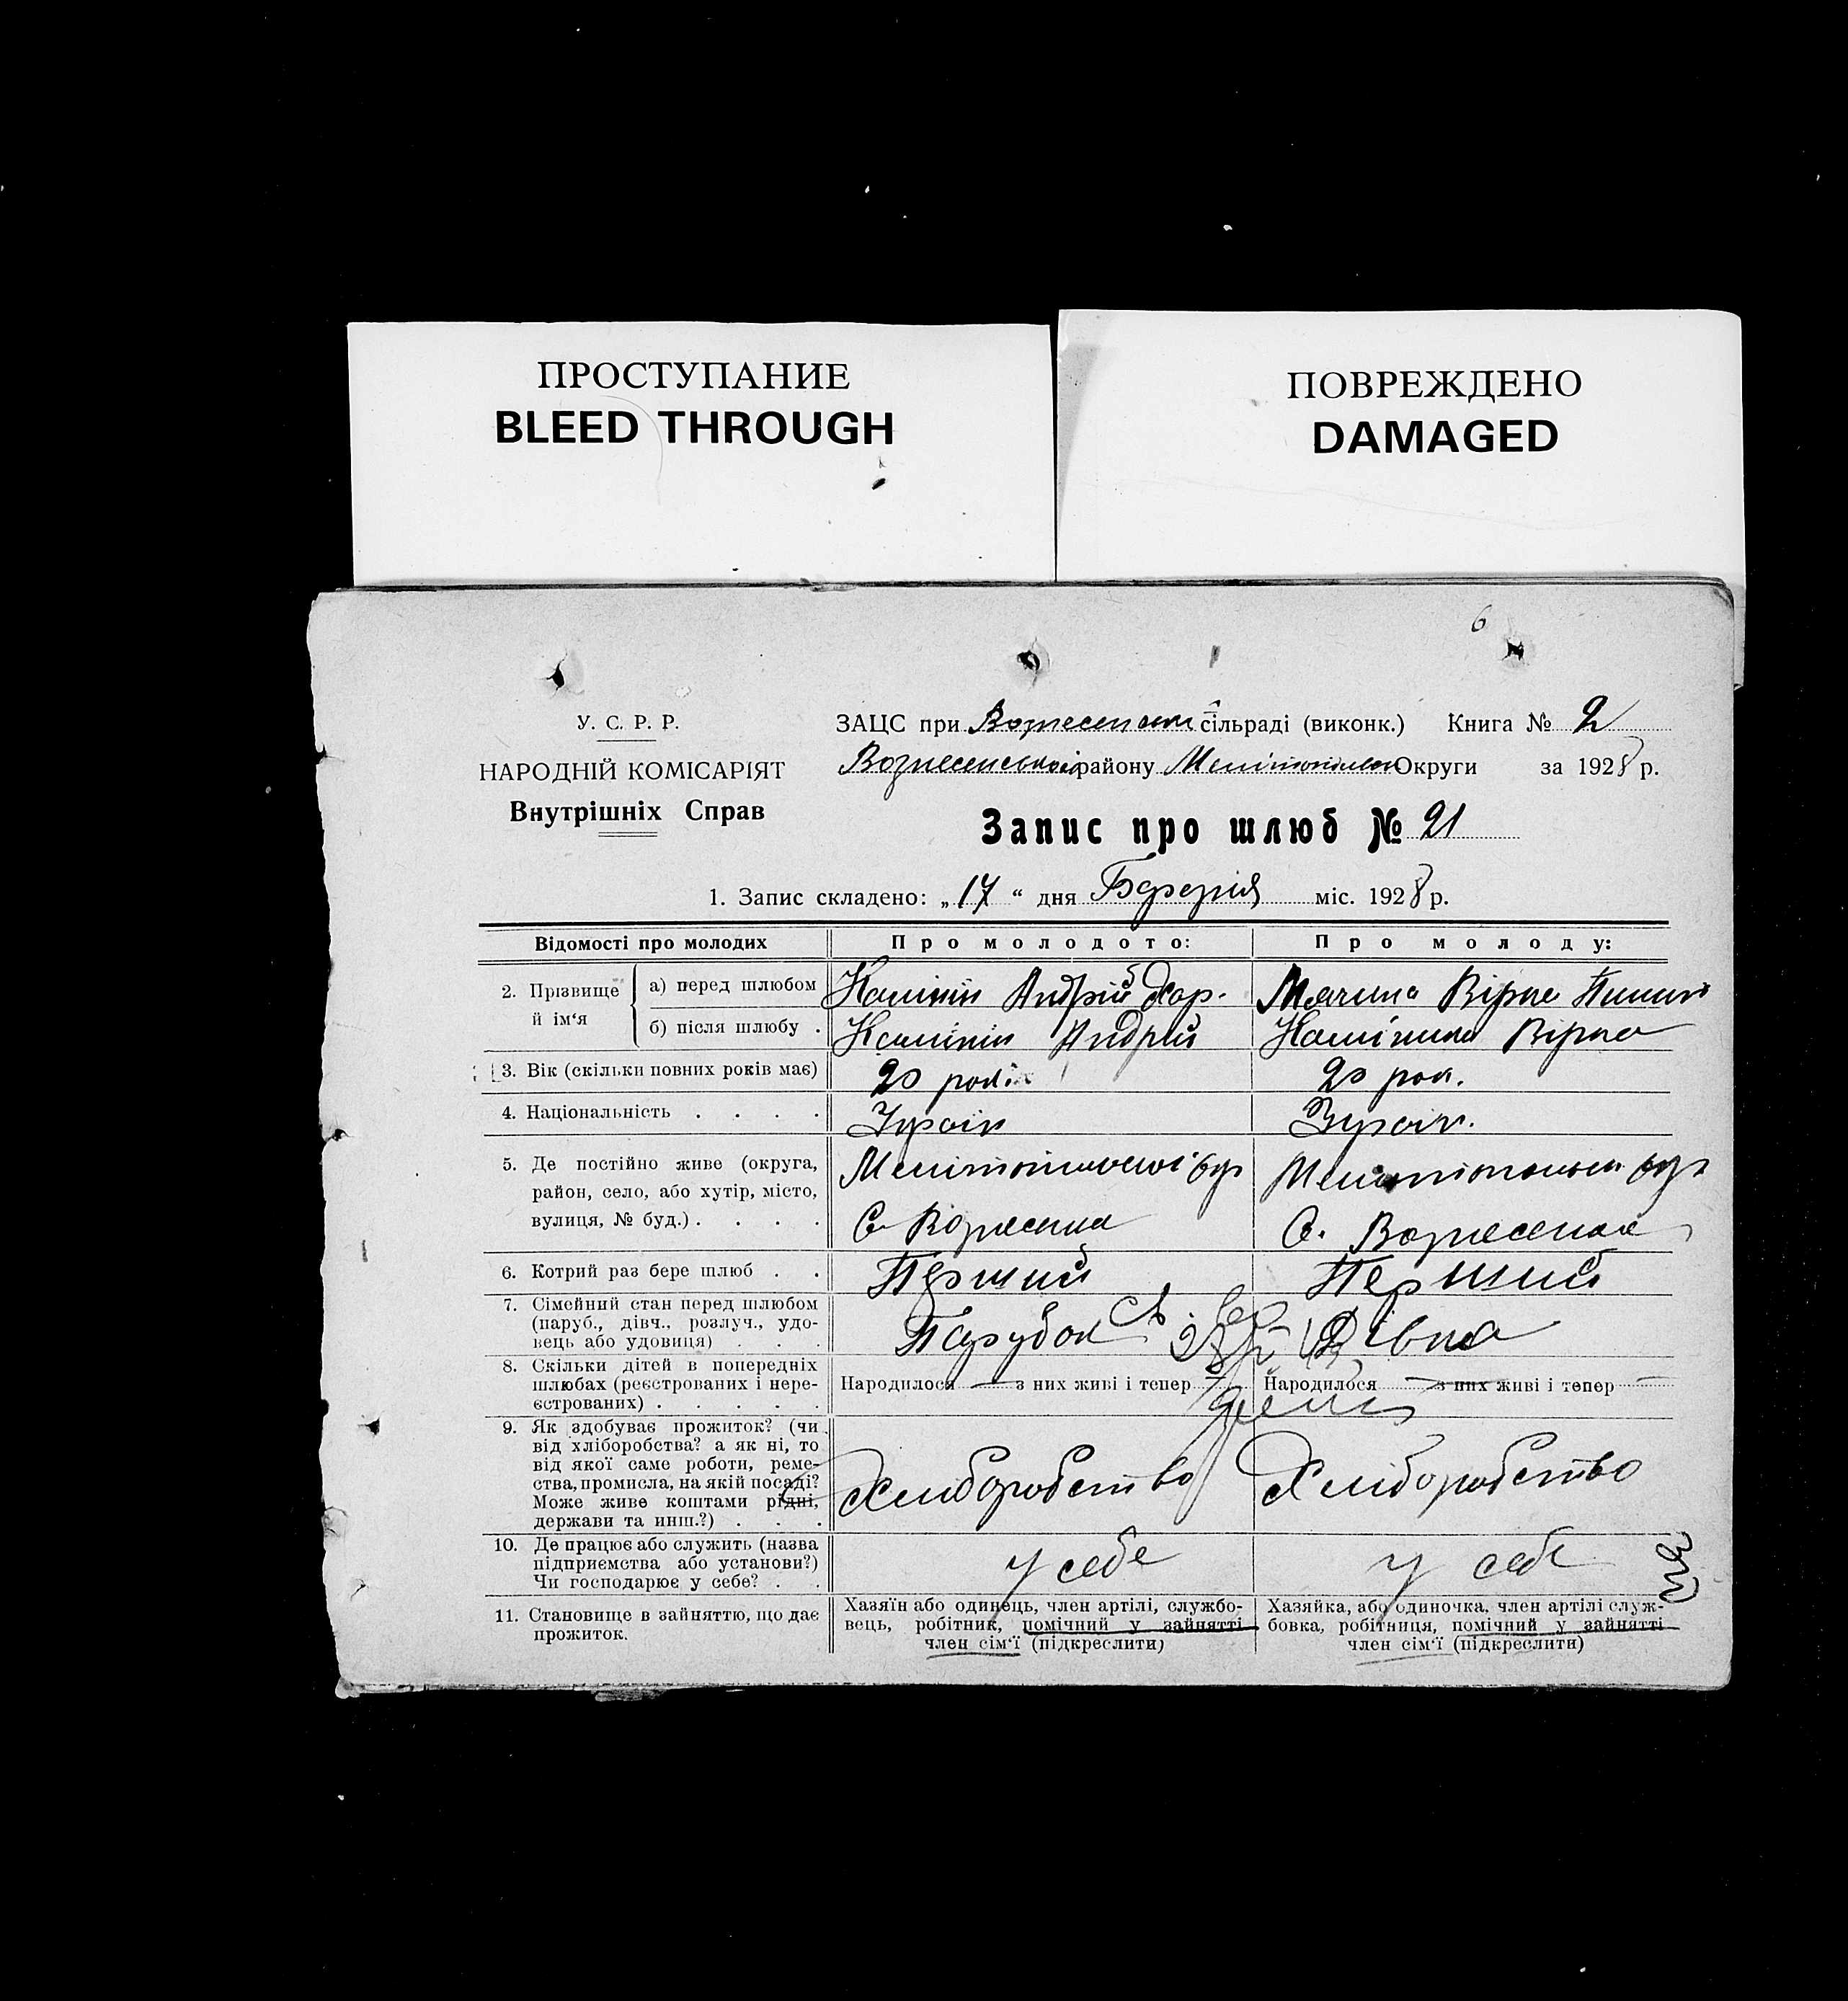 ПРОСТУПАНИЕ
BLEED THROUGH
ПОВРЕЖДЕНО
DAMAGED
6
У. С. Р. Р.
НАРОДНІЙ КОМІСАРІЯТ
Внутрішніх Справ
ЗАЦС при сільраді (виконк.) Книга № 2
Вознесенської району Округи за 1928 р.
Запис про шлюб № 21
1. Запис складено: „17“ дня Березня міс. 1928 р.
Відомості про молодих
Про молодого:
Про молоду:
2. Прізвище й ім‘я
а) перед шлюбом
Андрій Хар.
Вірка
б) після шлюбу .
Андрій
Вірка
3. Вік (скільки повних років має)
20 рок.
20 рок.
4. Національність . . . .
Україн
Україн.
5. Де постійно живе (округа,
район, село, або хутір, місто,
вулиця, № буд.) . . . .
С. Вознесенка
С. Вознесенка
6. Котрий раз бере шлюб . .
Перший
Перший
7. Сімейний стан перед шлюбом
(паруб., дівч., розлуч., удо-
вець або удовиця) . . .
Парубок
Дівка
8. Скільки дітей в попередніх
шлюбах (реєстрованих і нере-
єстрованих) . . . . .
Народилося — з них живі і тепер —
Народилося — з них живі і тепер —
9. Як здобуває прожиток? (чи
від хліборобства? а як ні, то
від якої саме роботи, реме-
ства, промисла, на якій посаді?
Може живе коштами рідні,
держави та инш.?) . . .
Хліборобство
Хліборобство
10. Де працює або служить (назва
підприємства або установи?)
Чи господарює у себе? . .
у себе
у себе
11. Становище в зайняттю, що дає
прожиток.
Хазяїн або одинець, член артілі, службо-
вець, робітник, помічний у зайнятті
член сім‘ї (підкреслити)
Хазяйка, або одиночка, член артілі служ-
бовка, робітниця, помічний у зайнятті
член сім‘ї (підкреслити)